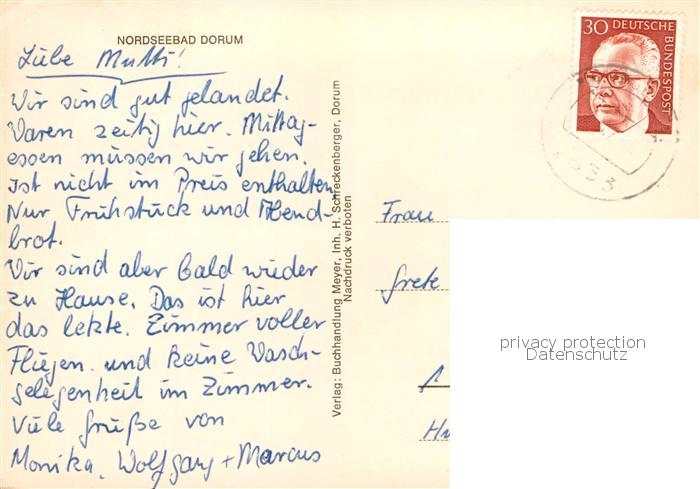 NORDSEEBAD DORUM
Liebe Mutti!
Wir sind gut gelandet.
Waren zeitig hier. Mittag-
essen müssen wir gehen.
Ist nicht im Preis enthalten
Nur Frühstück und Abend-
brot.
Wir sind aber bald wieder
zu Hause. Das ist hier
das letzte. Zimmer voller
Fliegen und keine Wasch-
gelegenheit im Zimmer.
Viele Grüße von
Monika, Wolfgang + Marcus
Verlag: Buchhandlung Meyer, Inh. H. Schreckenberger, Dorum
Nachdruck verboten
30 DEUTSCHE
BUNDESPOST
Frau
Grete
1
privacy protection
Datenschutz